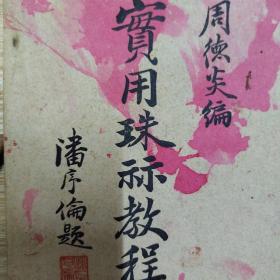 周德炎编
實用珠祘教程
潘序倫題